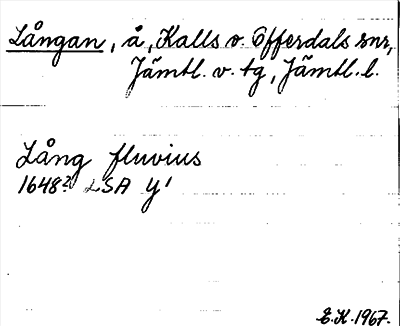 Långan, å, Kalls o. Offerdals snr,
Jämtl. v. tg, Jämtl. l.
Lång fluvius
1648? LSA Y¹
E.K. 1967.